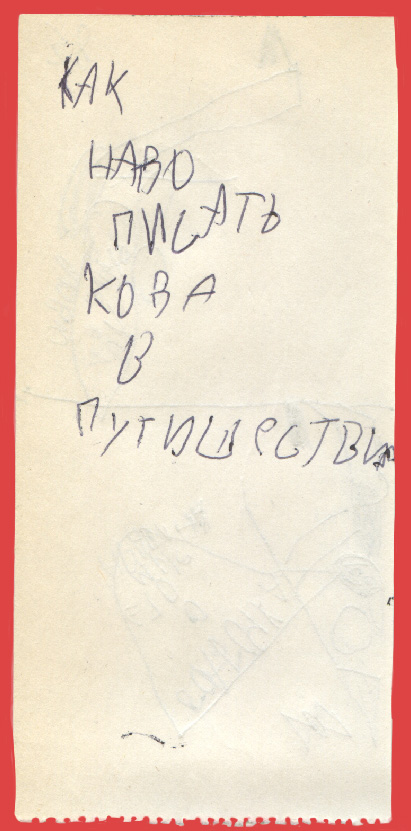 КАК
НАВО
ПИСАТЬ
КОВА
В
ПУТИШЕСТВИЯ